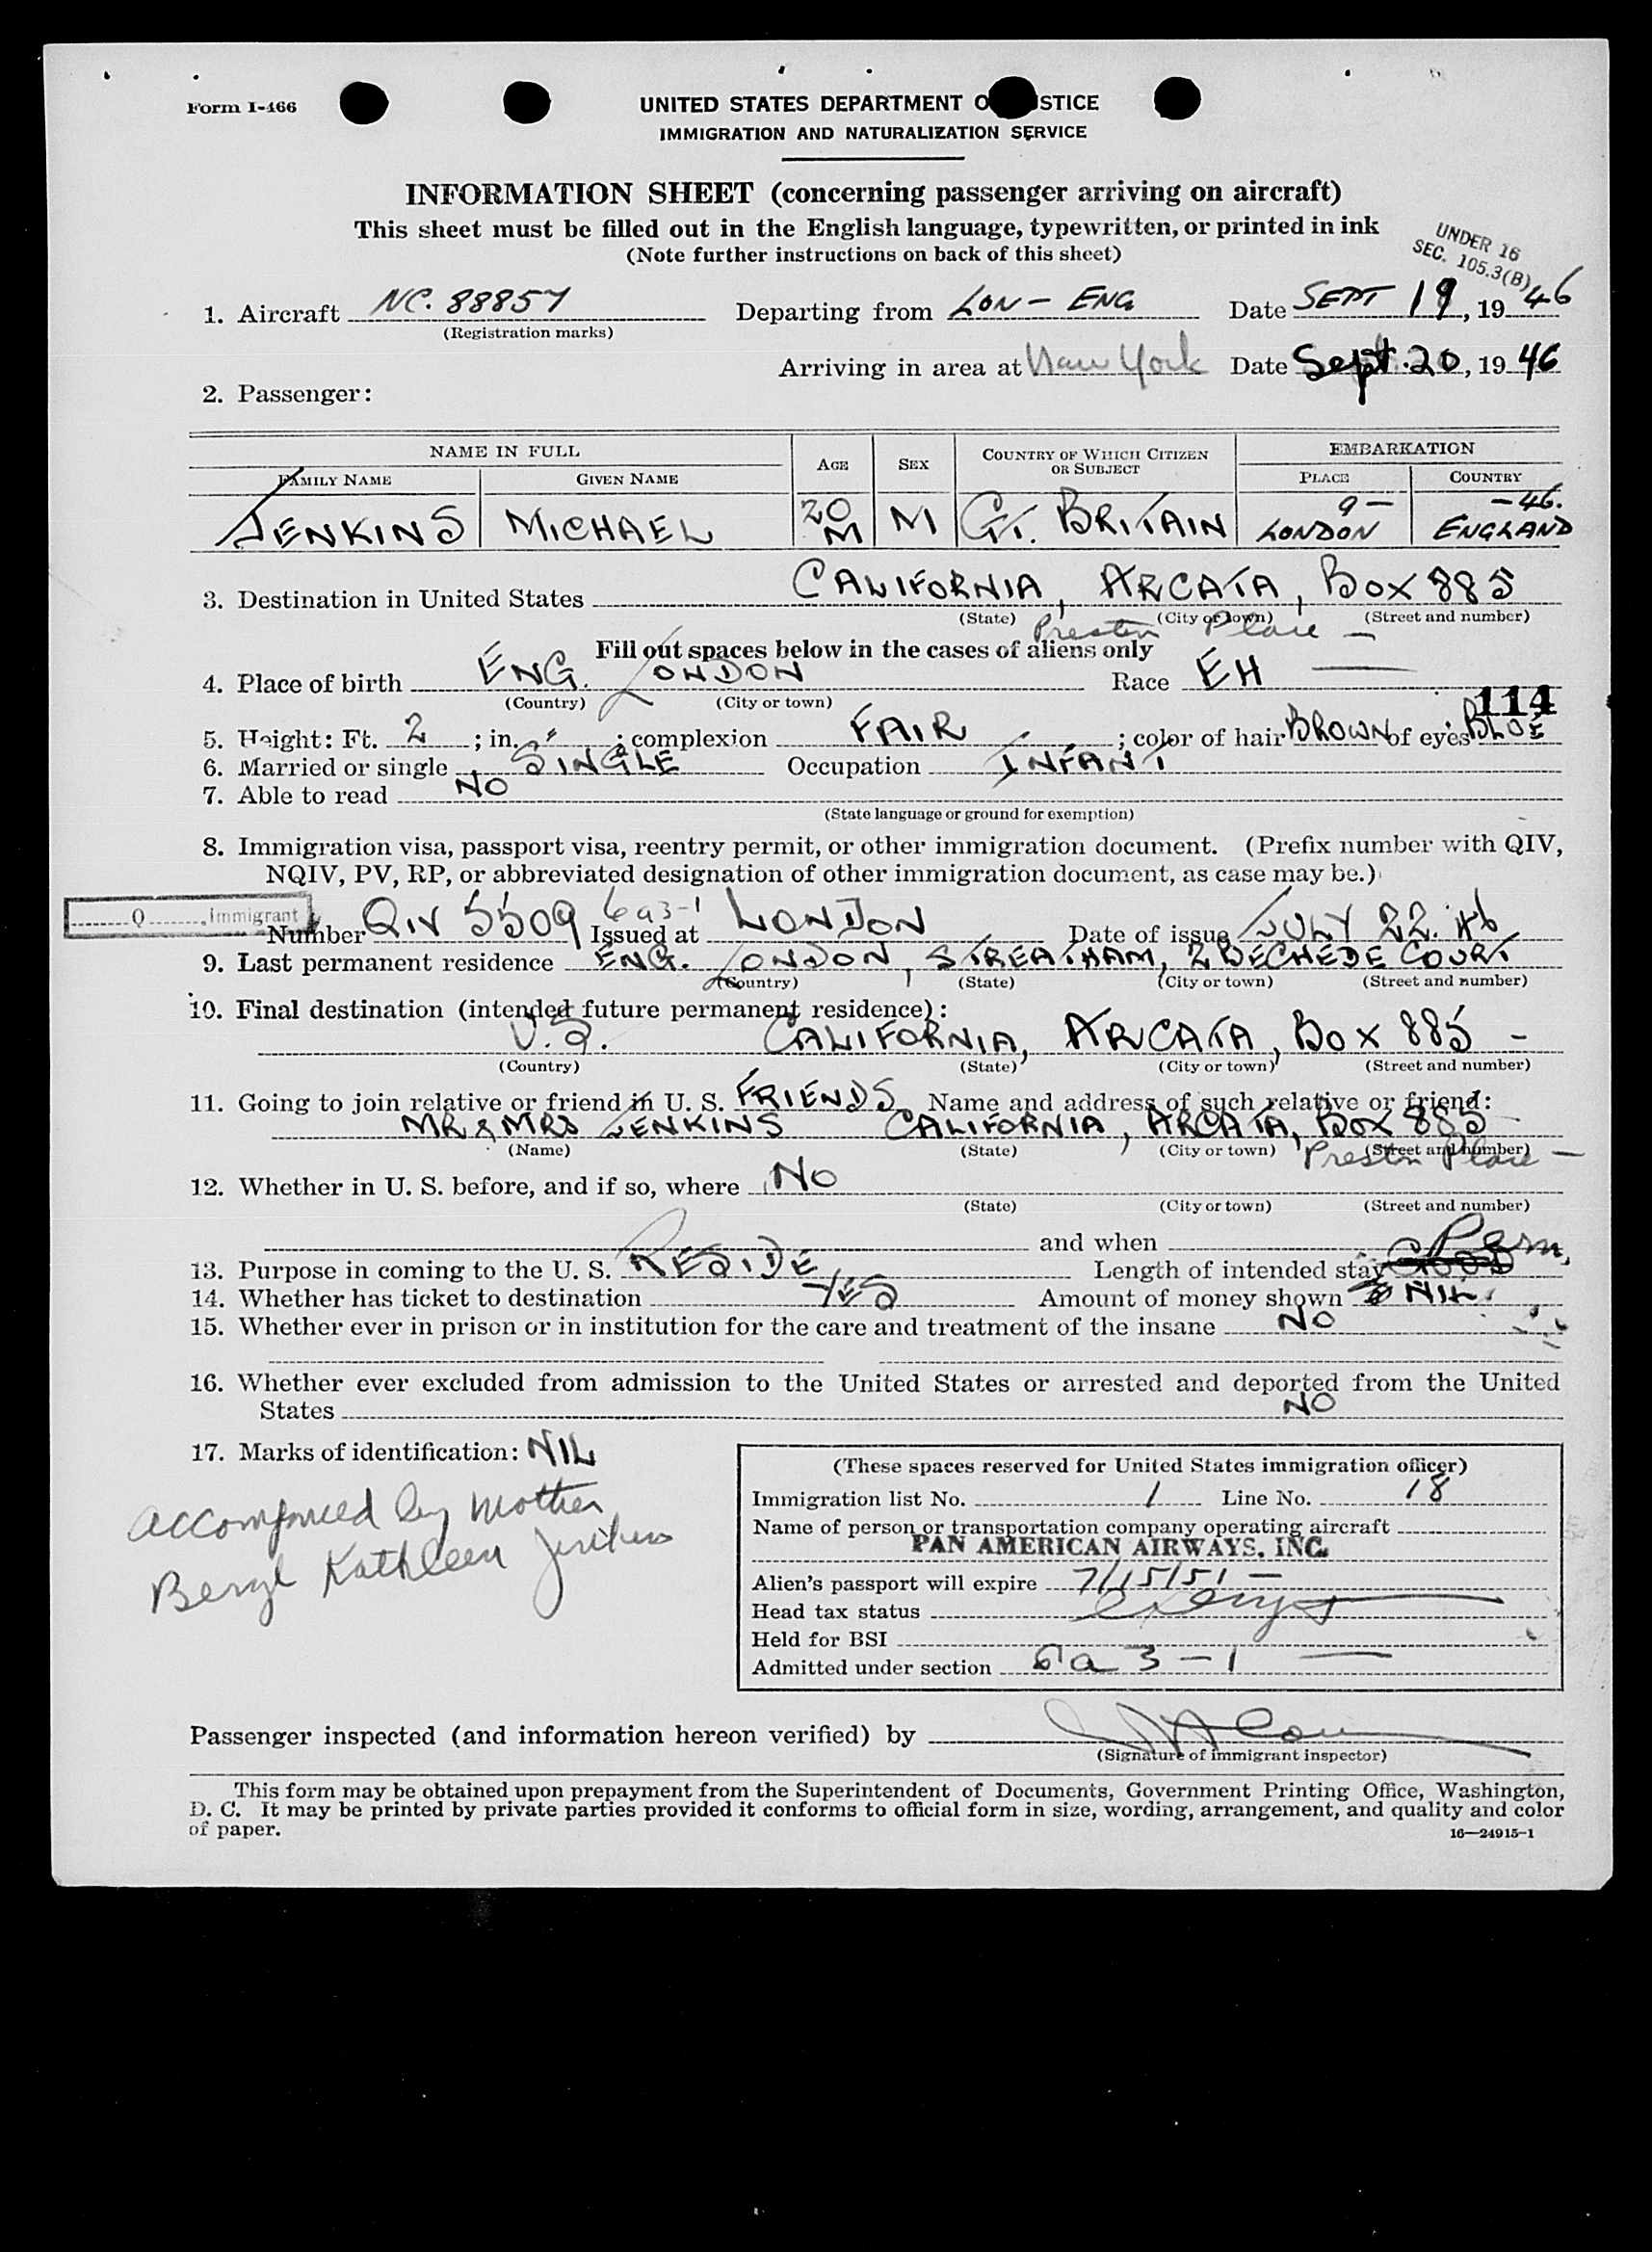 Form I-466
UNITED STATES DEPARTMENT O STICE
IMMIGRATION AND NATURALIZATION SERVICE
INFORMATION SHEET (concerning passenger arriving on aircraft)
This sheet must be filled out in the English language, typewritten, or printed in ink
(Note further instructions on back of this sheet)
UNDER 16
SEC. 105.3(B)
1. Aircraft NC. 88857 Departing from LON - ENG Date SEPT 19, 1946
(Registration marks)
Arriving in area at New York Date Sept. 20, 19 46
2. Passenger:
NAME IN FULL AGE SEX COUNTRY OF WHICH CITIZEN OR SUBJECT EMBARKATION
FAMILY NAME GIVEN NAME PLACE COUNTRY
9 - - 46.
JENKINS MICHAEL 20 M M GT. BRITAIN LONDON ENGLAND
3. Destination in United States CALIFORNIA, ARCATA, BOX 885
(State) (City or town) (Street and number)
Preston Place -
Fill out spaces below in the cases of aliens only
4. Place of birth ENG. LONDON Race EH
(Country) (City or town)
114
5. Height: Ft. 2; in. ; complexion FAIR; color of hair BROWN of eyes BLUE
6. Married or single SINGLE Occupation INFANT
7. Able to read NO
(State language or ground for exemption)
8. Immigration visa, passport visa, reentry permit, or other immigration document. (Prefix number with QIV,
NQIV, PV, RP, or abbreviated designation of other immigration document, as case may be.)
Q Immigrant
Number QIV 5509 6a3-1 Issued at LONDON Date of issue JULY 22. 46
9. Last permanent residence ENG. LONDON, STREATHAM, 2 COURT
(Country) (State) (City or town) (Street and number)
10. Final destination (intended future permanent residence):
U.S. CALIFORNIA, ARCATA, BOX 885 -
(Country) (State) (City or town) (Street and number)
11. Going to join relative or friend in U. S. FRIENDS Name and address of such relative or friend:
MR & MRS JENKINS CALIFORNIA, ARCATA, BOX 885
(Name) (State) (City or town) (Street and number)
Preston Place -
12. Whether in U. S. before, and if so, where NO
(State) (City or town) (Street and number)
and when
13. Purpose in coming to the U. S. RESIDE Length of intended stay Perm.
14. Whether has ticket to destination YES Amount of money shown NIL
15. Whether ever in prison or in institution for the care and treatment of the insane NO
16. Whether ever excluded from admission to the United States or arrested and deported from the United
States NO
17. Marks of identification: NIL
accompanied by mother
Beryl Kathleen Jenkins
(These spaces reserved for United States immigration officer)
Immigration list No. 1 Line No. 18
Name of person or transportation company operating aircraft
PAN AMERICAN AIRWAYS, INC.
Alien's passport will expire 7/15/51 -
Head tax status exempt
Held for BSI
Admitted under section 6a 3-1
Passenger inspected (and information hereon verified) by
(Signature of immigrant inspector)
This form may be obtained upon prepayment from the Superintendent of Documents, Government Printing Office, Washington,
D. C. It may be printed by private parties provided it conforms to official form in size, wording, arrangement, and quality and color
of paper.
16—24915-1